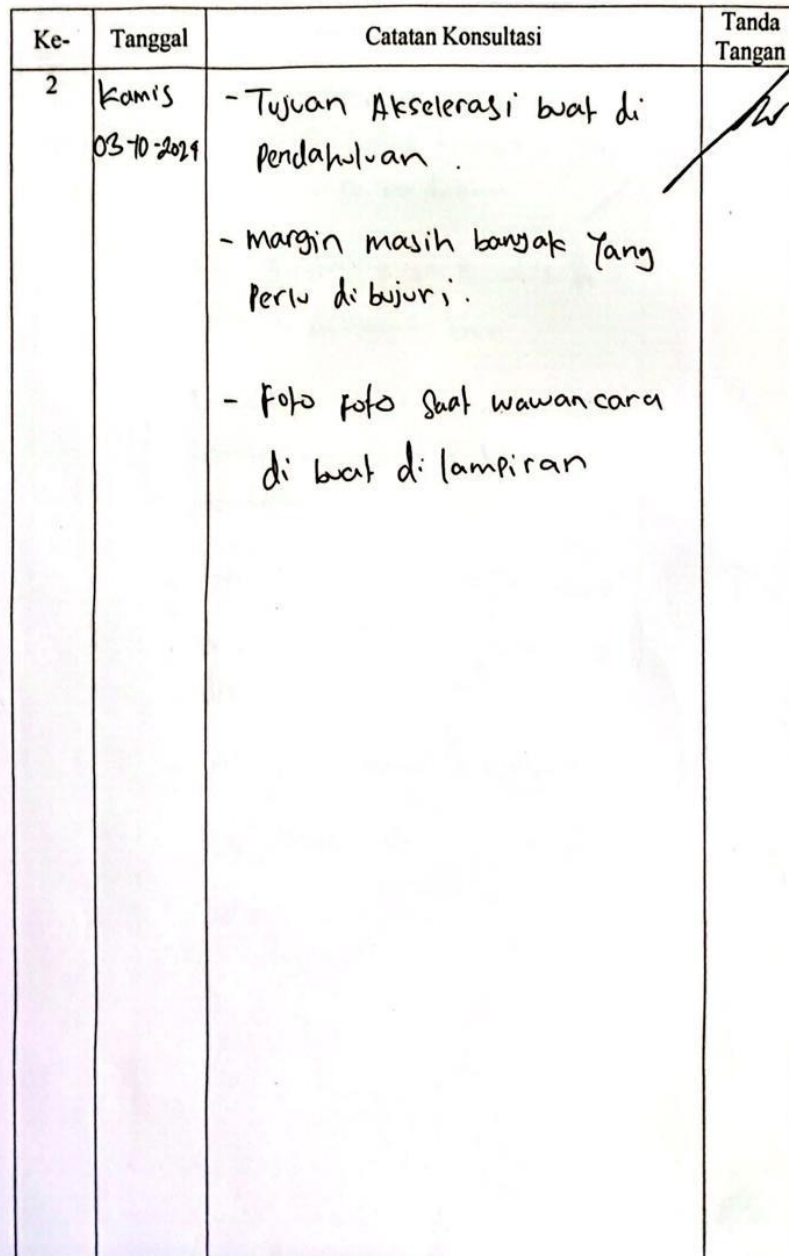 Ke- Tanggal Catatan Konsultasi Tanda Tangan
2 Kamis - Tujuan Akselerasi buat di
03-10-2024 Pendahuluan .
- margin masih banyak Yang
Perlu di bujuri.
- Foto Foto Saat wawancara
di buat di lampiran